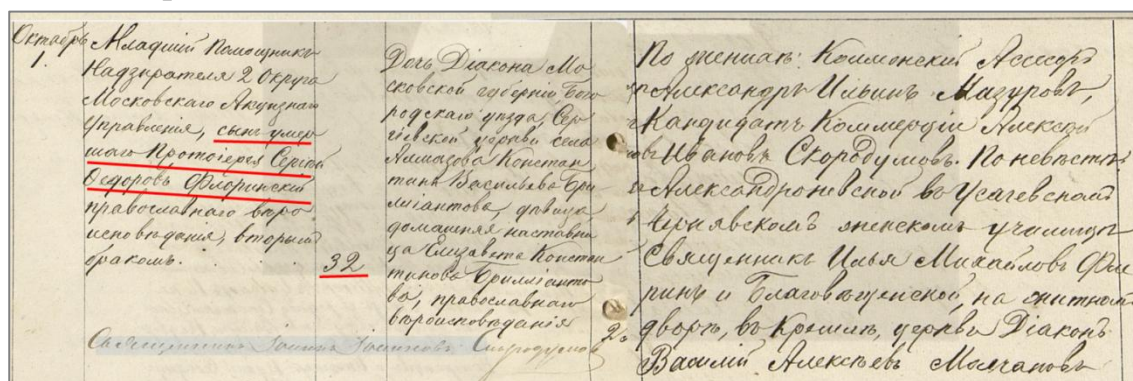 Октябрь
Младшій Помощникъ
Надзирателя 2 Округа
Московскаго Акцизнаго
Управленія, сынъ умер
шаго Протоіерея Сергій
Ѳедоровъ Флоринскій
православнаго вѣро
исповѣданія, вторымъ
бракомъ.
32
Дочь Діакона Мо
сковской губерніи, Бого
родскаго уѣзда, Сер
гіевской церкви села
Алмазова Констан
тина Васильева Бри
лліантова, дѣвица
домашняя наставни
ца Елизавета Констан
тинова Брилліанто
ва, православнаго
вѣроисповѣданія
Священникъ Іоаннъ Скородумовъ
По женихѣ: Коллежскій Ассесоръ
Александръ Ильинъ Мазуровъ,
Кандидатъ Коммерціи Алексѣй
Ивановъ Скородумовъ. По невѣстѣ:
Александроневской въ Усачевскомъ
Чернявскомъ женскомъ училищѣ
Священникъ Илья Михайловъ
и Благовѣщенской, на житномъ
дворѣ, въ Кремлѣ, церкви Діаконъ
Василій Алексѣевъ Молчановъ